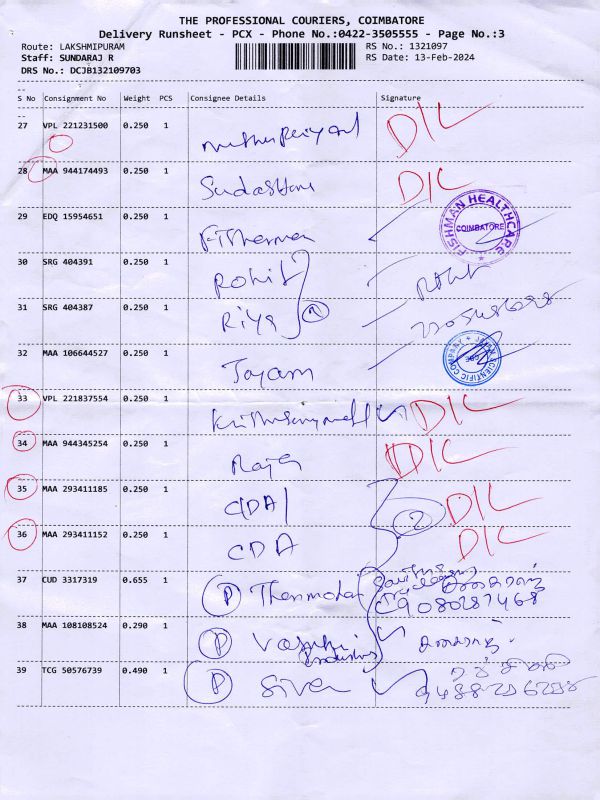 THE PROFESSIONAL COURIERS, COIMBATORE
Delivery Runsheet - PCX - Phone No.:0422-3505555 - Page No.:3
Route: LAKSHMIPURAM
RS No.: 1321097
Staff: SUNDARAJ R
RS Date: 13-Feb-2024
DRS No.: DCJB132109703
S No Consignment No Weight PCS Consignee Details Signature
27 VPL 221231500 0.250 1 D/L
28 MAA 944174493 0.250 1 D/L
29 EDQ 15954651 0.250 1 Fisherman
FISHMAN HEALTHCARE
COIMBATORE
30 SRG 404391 0.250 1 Rohit
31 SRG 404387 0.250 1 Riya
32 MAA 106644527 0.250 1 Jayam
33 VPL 221837554 0.250 1 D/L
34 MAA 944345254 0.250 1 Raja D/L
35 MAA 293411185 0.250 1 CDA 2 D/L
36 MAA 293411152 0.250 1 CDA D/L
37 CUD 3317319 0.655 1 P
9080287468
38 MAA 108108524 0.290 1 P
39 TCG 50576739 0.490 1 P Siva